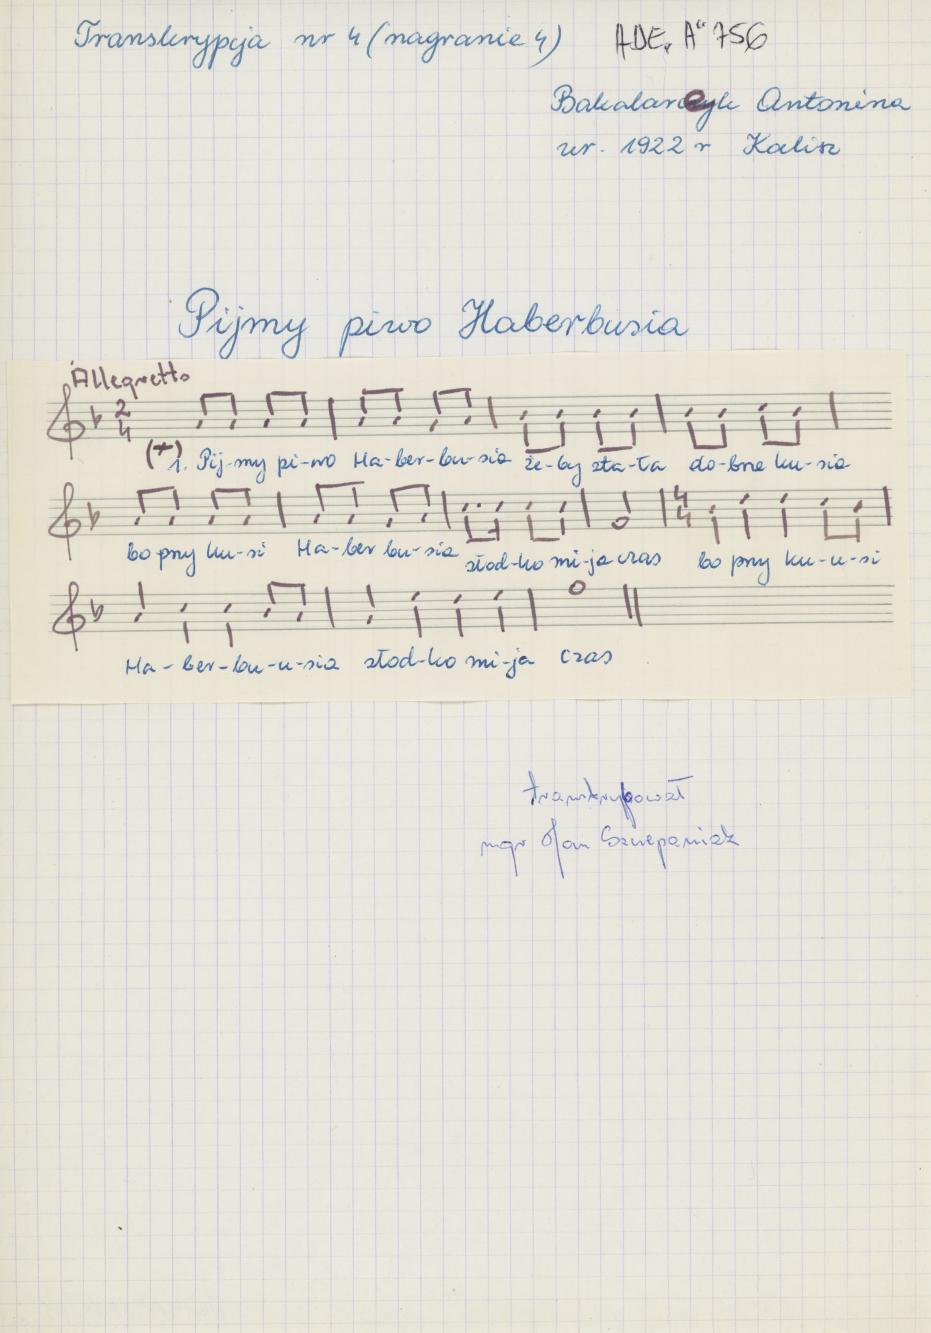 Transkrypcja nr 4 (nagranie 4) ADE "A" 756
Bakalarczyk Antonina
ur. 1922 r Kalisz
Pijmy piwo Haberbusia
Allegretto
2
4
(+) 1. Pij-my pi-wo Ha-ber-bu-sia że-by sta-ła do-bra ku-sia
bo przy ku-si Ha-ber bu-sia słod-ko mi-ja czas bo przy ku-u-si
4
4
Ha-ber-bu-u-sia słod-ko mi-ja czas
transkrybował
mgr Jan Szczepaniak